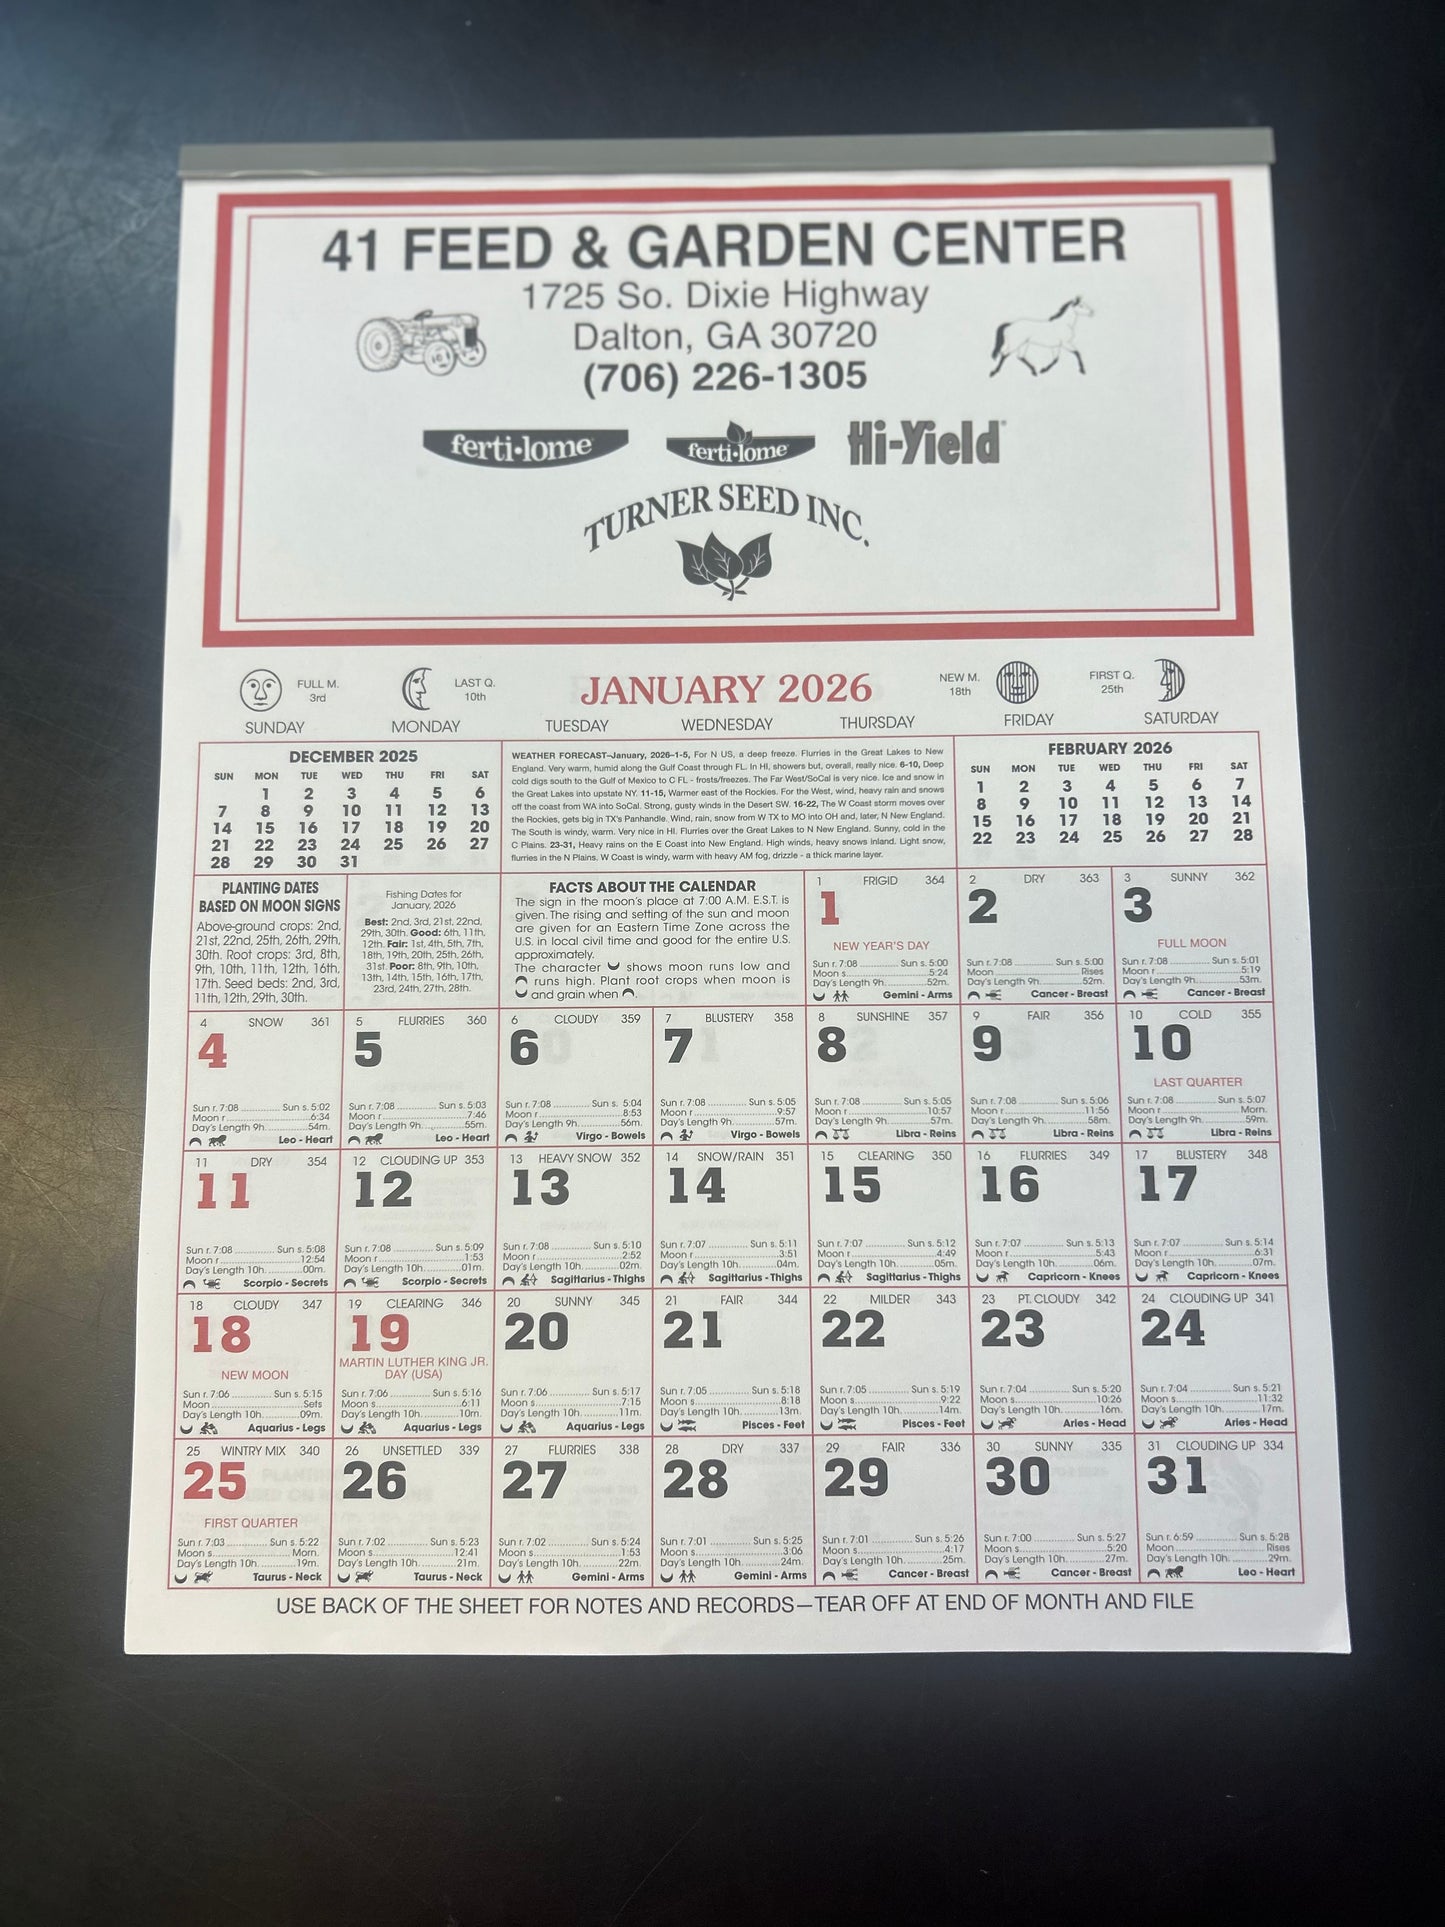 41 FEED & GARDEN CENTER
1725 So. Dixie Highway
Dalton, GA 30720
(706) 226-1305
ferti•lome
ferti•lome
Hi-Yield®
TURNER SEED INC.
FULL M.
3rd
LAST Q.
10th
JANUARY 2026
NEW M.
18th
FIRST Q.
25th
SUNDAY MONDAY TUESDAY WEDNESDAY THURSDAY FRIDAY SATURDAY
DECEMBER 2025
SUN MON TUE WED THU FRI SAT
1 2 3 4 5 6
7 8 9 10 11 12 13
14 15 16 17 18 19 20
21 22 23 24 25 26 27
28 29 30 31
WEATHER FORECAST–January, 2026–1-5, For N US, a deep freeze. Flurries in the Great Lakes to New
England. Very warm, humid along the Gulf Coast through FL. In HI, showers but, overall, really nice. 6-10, Deep
cold digs south to the Gulf of Mexico to C FL - frosts/freezes. The Far West/SoCal is very nice. Ice and snow in
the Great Lakes into upstate NY. 11-15, Warmer east of the Rockies. For the West, wind, heavy rain and snows
off the coast from WA into SoCal. Strong, gusty winds in the Desert SW. 16-22, The W Coast storm moves over
the Rockies, gets big in TX's Panhandle. Wind, rain, snow from W TX to MO into OH and, later, N New England.
The South is windy, warm. Very nice in HI. Flurries over the Great Lakes to N New England. Sunny, cold in the
C Plains. 23-31, Heavy rains on the E Coast into New England. High winds, heavy snows inland. Light snow,
flurries in the N Plains. W Coast is windy, warm with heavy AM fog, drizzle - a thick marine layer.
FEBRUARY 2026
SUN MON TUE WED THU FRI SAT
1 2 3 4 5 6 7
8 9 10 11 12 13 14
15 16 17 18 19 20 21
22 23 24 25 26 27 28
PLANTING DATES
BASED ON MOON SIGNS
Above-ground crops: 2nd,
21st, 22nd, 25th, 26th, 29th,
30th. Root crops: 3rd, 8th,
9th, 10th, 11th, 12th, 16th,
17th. Seed beds: 2nd, 3rd,
11th, 12th, 29th, 30th.
Fishing Dates for
January, 2026
Best: 2nd, 3rd, 21st, 22nd,
29th, 30th. Good: 6th, 11th,
12th. Fair: 1st, 4th, 5th, 7th,
18th, 19th, 20th, 25th, 26th,
31st. Poor: 8th, 9th, 10th,
13th, 14th, 15th, 16th, 17th,
23rd, 24th, 27th, 28th.
FACTS ABOUT THE CALENDAR
The sign in the moon's place at 7:00 A.M. E.S.T. is
given. The rising and setting of the sun and moon
are given for an Eastern Time Zone across the
U.S. in local civil time and good for the entire U.S.
approximately.
The character shows moon runs low and
runs high. Plant root crops when moon is
and grain when .
1 FRIGID 364
1
NEW YEAR'S DAY
Sun r. 7:08 Sun s. 5:00
Moon s. 5:24
Day's Length 9h. 52m.
Gemini - Arms
2 DRY 363
2
Sun r. 7:08 Sun s. 5:00
Moon Rises
Day's Length 9h. 52m.
Cancer - Breast
3 SUNNY 362
3
FULL MOON
Sun r. 7:08 Sun s. 5:01
Moon r. 5:19
Day's Length 9h. 53m.
Cancer - Breast
4 SNOW 361
4
Sun r. 7:08 Sun s. 5:02
Moon r. 6:34
Day's Length 9h. 54m.
Leo - Heart
5 FLURRIES 360
5
Sun r. 7:08 Sun s. 5:03
Moon r. 7:46
Day's Length 9h. 55m.
Leo - Heart
6 CLOUDY 359
6
Sun r. 7:08 Sun s. 5:04
Moon r. 8:53
Day's Length 9h. 56m.
Virgo - Bowels
7 BLUSTERY 358
7
Sun r. 7:08 Sun s. 5:05
Moon r. 9:57
Day's Length 9h. 57m.
Virgo - Bowels
8 SUNSHINE 357
8
Sun r. 7:08 Sun s. 5:05
Moon r. 10:57
Day's Length 9h. 57m.
Libra - Reins
9 FAIR 356
9
Sun r. 7:08 Sun s. 5:06
Moon r. 11:56
Day's Length 9h. 58m.
Libra - Reins
10 COLD 355
10
LAST QUARTER
Sun r. 7:08 Sun s. 5:07
Moon r. Morn.
Day's Length 9h. 59m.
Libra - Reins
11 DRY 354
11
Sun r. 7:08 Sun s. 5:08
Moon r. 12:54
Day's Length 10h. 00m.
Scorpio - Secrets
12 CLOUDING UP 353
12
Sun r. 7:08 Sun s. 5:09
Moon r. 1:53
Day's Length 10h. 01m.
Scorpio - Secrets
13 HEAVY SNOW 352
13
Sun r. 7:08 Sun s. 5:10
Moon r. 2:52
Day's Length 10h. 02m.
Sagittarius - Thighs
14 SNOW/RAIN 351
14
Sun r. 7:07 Sun s. 5:11
Moon r. 3:51
Day's Length 10h. 04m.
Sagittarius - Thighs
15 CLEARING 350
15
Sun r. 7:07 Sun s. 5:12
Moon r. 4:49
Day's Length 10h. 05m.
Sagittarius - Thighs
16 FLURRIES 349
16
Sun r. 7:07 Sun s. 5:13
Moon r. 5:43
Day's Length 10h. 06m.
Capricorn - Knees
17 BLUSTERY 348
17
Sun r. 7:07 Sun s. 5:14
Moon r. 6:31
Day's Length 10h. 07m.
Capricorn - Knees
18 CLOUDY 347
18
NEW MOON
Sun r. 7:06 Sun s. 5:15
Moon Sets
Day's Length 10h. 09m.
Aquarius - Legs
19 CLEARING 346
19
MARTIN LUTHER KING JR.
DAY (USA)
Sun r. 7:06 Sun s. 5:16
Moon s. 6:11
Day's Length 10h. 10m.
Aquarius - Legs
20 SUNNY 345
20
Sun r. 7:06 Sun s. 5:17
Moon s. 7:15
Day's Length 10h. 11m.
Aquarius - Legs
21 FAIR 344
21
Sun r. 7:05 Sun s. 5:18
Moon s. 8:18
Day's Length 10h. 13m.
Pisces - Feet
22 MILDER 343
22
Sun r. 7:05 Sun s. 5:19
Moon s. 9:22
Day's Length 10h. 14m.
Pisces - Feet
23 PT. CLOUDY 342
23
Sun r. 7:04 Sun s. 5:20
Moon s. 10:26
Day's Length 10h. 16m.
Aries - Head
24 CLOUDING UP 341
24
Sun r. 7:04 Sun s. 5:21
Moon s. 11:32
Day's Length 10h. 17m.
Aries - Head
25 WINTRY MIX 340
25
FIRST QUARTER
Sun r. 7:03 Sun s. 5:22
Moon s. Morn.
Day's Length 10h. 19m.
Taurus - Neck
26 UNSETTLED 339
26
Sun r. 7:02 Sun s. 5:23
Moon s. 12:41
Day's Length 10h. 21m.
Taurus - Neck
27 FLURRIES 338
27
Sun r. 7:02 Sun s. 5:24
Moon s. 1:53
Day's Length 10h. 22m.
Gemini - Arms
28 DRY 337
28
Sun r. 7:01 Sun s. 5:25
Moon s. 3:06
Day's Length 10h. 24m.
Gemini - Arms
29 FAIR 336
29
Sun r. 7:01 Sun s. 5:26
Moon s. 4:17
Day's Length 10h. 25m.
Cancer - Breast
30 SUNNY 335
30
Sun r. 7:00 Sun s. 5:27
Moon s. 5:20
Day's Length 10h. 27m.
Cancer - Breast
31 CLOUDING UP 334
31
Sun r. 6:59 Sun s. 5:28
Moon Rises
Day's Length 10h. 29m.
Leo - Heart
USE BACK OF THE SHEET FOR NOTES AND RECORDS—TEAR OFF AT END OF MONTH AND FILE